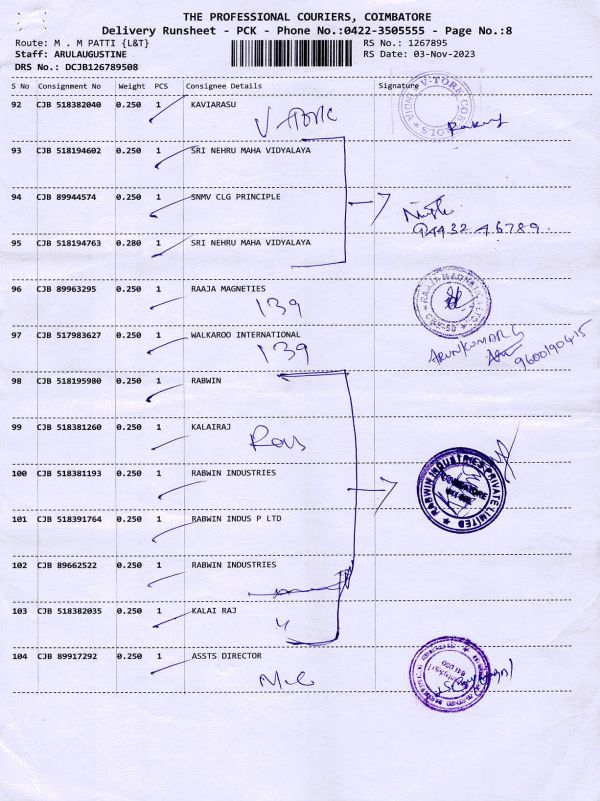 THE PROFESSIONAL COURIERS, COIMBATORE
Delivery Runsheet - PCK - Phone No.:0422-3505555 - Page No.:8
Route: M . M PATTI {L&T} RS No.: 1267895
Staff: ARULAUGUSTINE RS Date: 03-Nov-2023
DRS No.: DCJB126789508
S No Consignment No Weight PCS Consignee Details Signature
92 CJB 518382040 0.250 1 KAVIARASU
V-TORC
V-TORE CONTROLS
93 CJB 518194602 0.250 1 SRI NEHRU MAHA VIDYALAYA
94 CJB 89944574 0.250 1 SNMV CLG PRINCIPLE
94432 46789
95 CJB 518194763 0.280 1 SRI NEHRU MAHA VIDYALAYA
96 CJB 89963295 0.250 1 RAAJA MAGNETIES
139
97 CJB 517983627 0.250 1 WALKAROO INTERNATIONAL
139
ARUNKUMAR G
9600190415
98 CJB 518195980 0.250 1 RABWIN
99 CJB 518381260 0.250 1 KALAIRAJ
100 CJB 518381193 0.250 1 RABWIN INDUSTRIES
RABWIN INDUSTRIES PRIVATE LIMITED
COIMBATORE
101 CJB 518391764 0.250 1 RABWIN INDUS P LTD
102 CJB 89662522 0.250 1 RABWIN INDUSTRIES
103 CJB 518382035 0.250 1 KALAI RAJ
104 CJB 89917292 0.250 1 ASSTS DIRECTOR